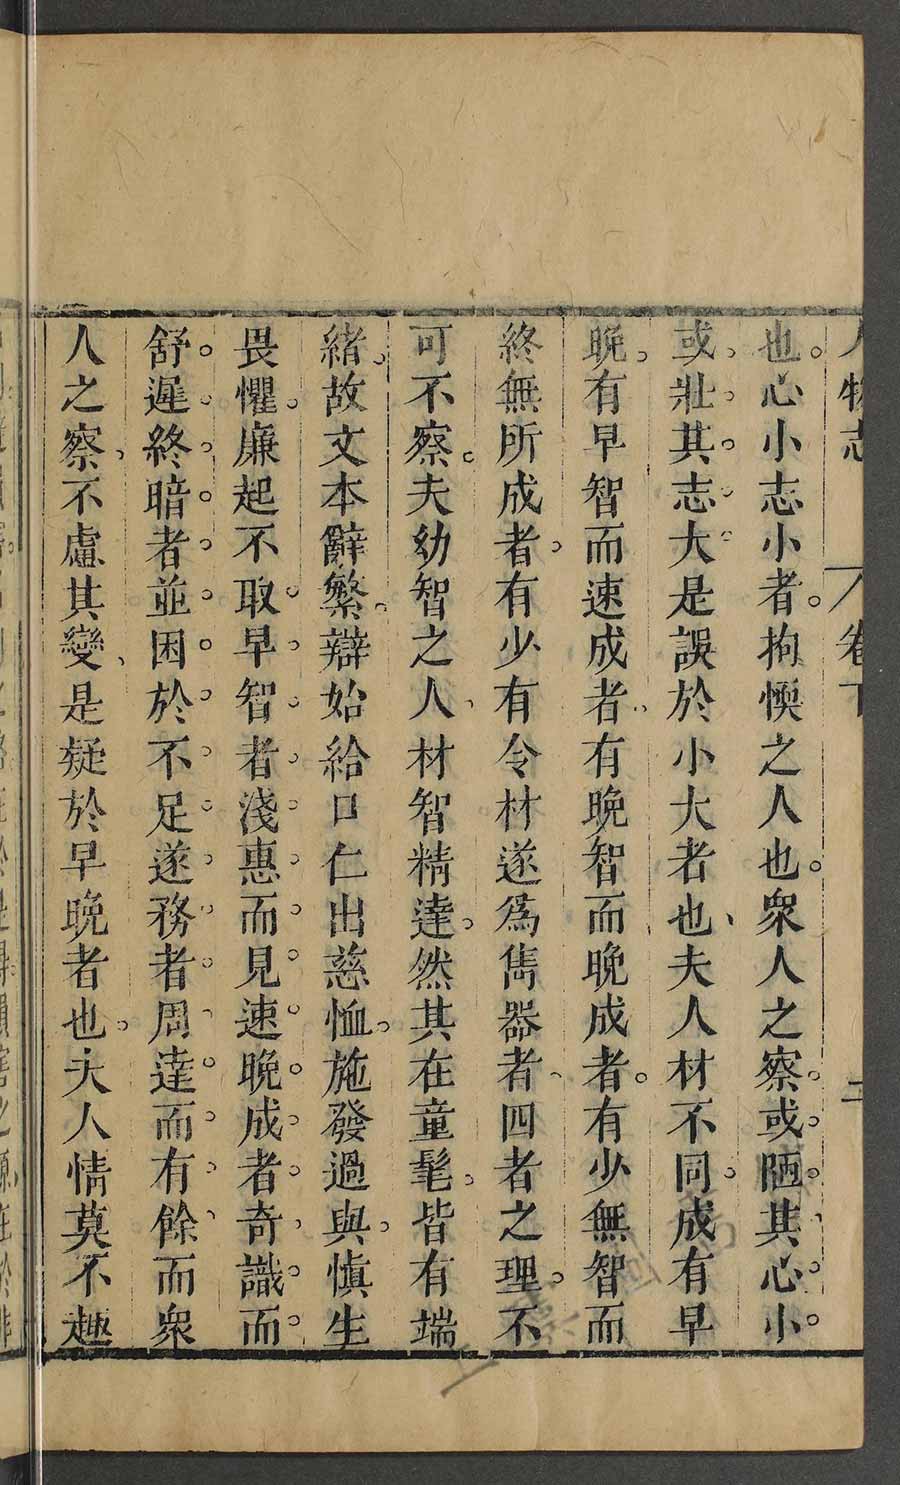 人物志 卷下 二
也心小志小者拘愞之人也衆人之察或陋其心小
或壯其志大是誤於小大者也夫人材不同成有早
晚有早智而速成者有晚智而晚成者有少無智而
終無所成者有少有令材遂爲雋器者四者之理不
可不察夫幼智之人材智精達然其在童髦皆有端
緒故文本辭繁辯始給口仁出慈恤施發過與慎生
畏懼廉起不取早智者淺惠而見速晚成者奇識而
舒遲終暗者並困於不足遂務者周達而有餘而衆
人之察不慮其變是疑於早晚者也夫人情莫不趣